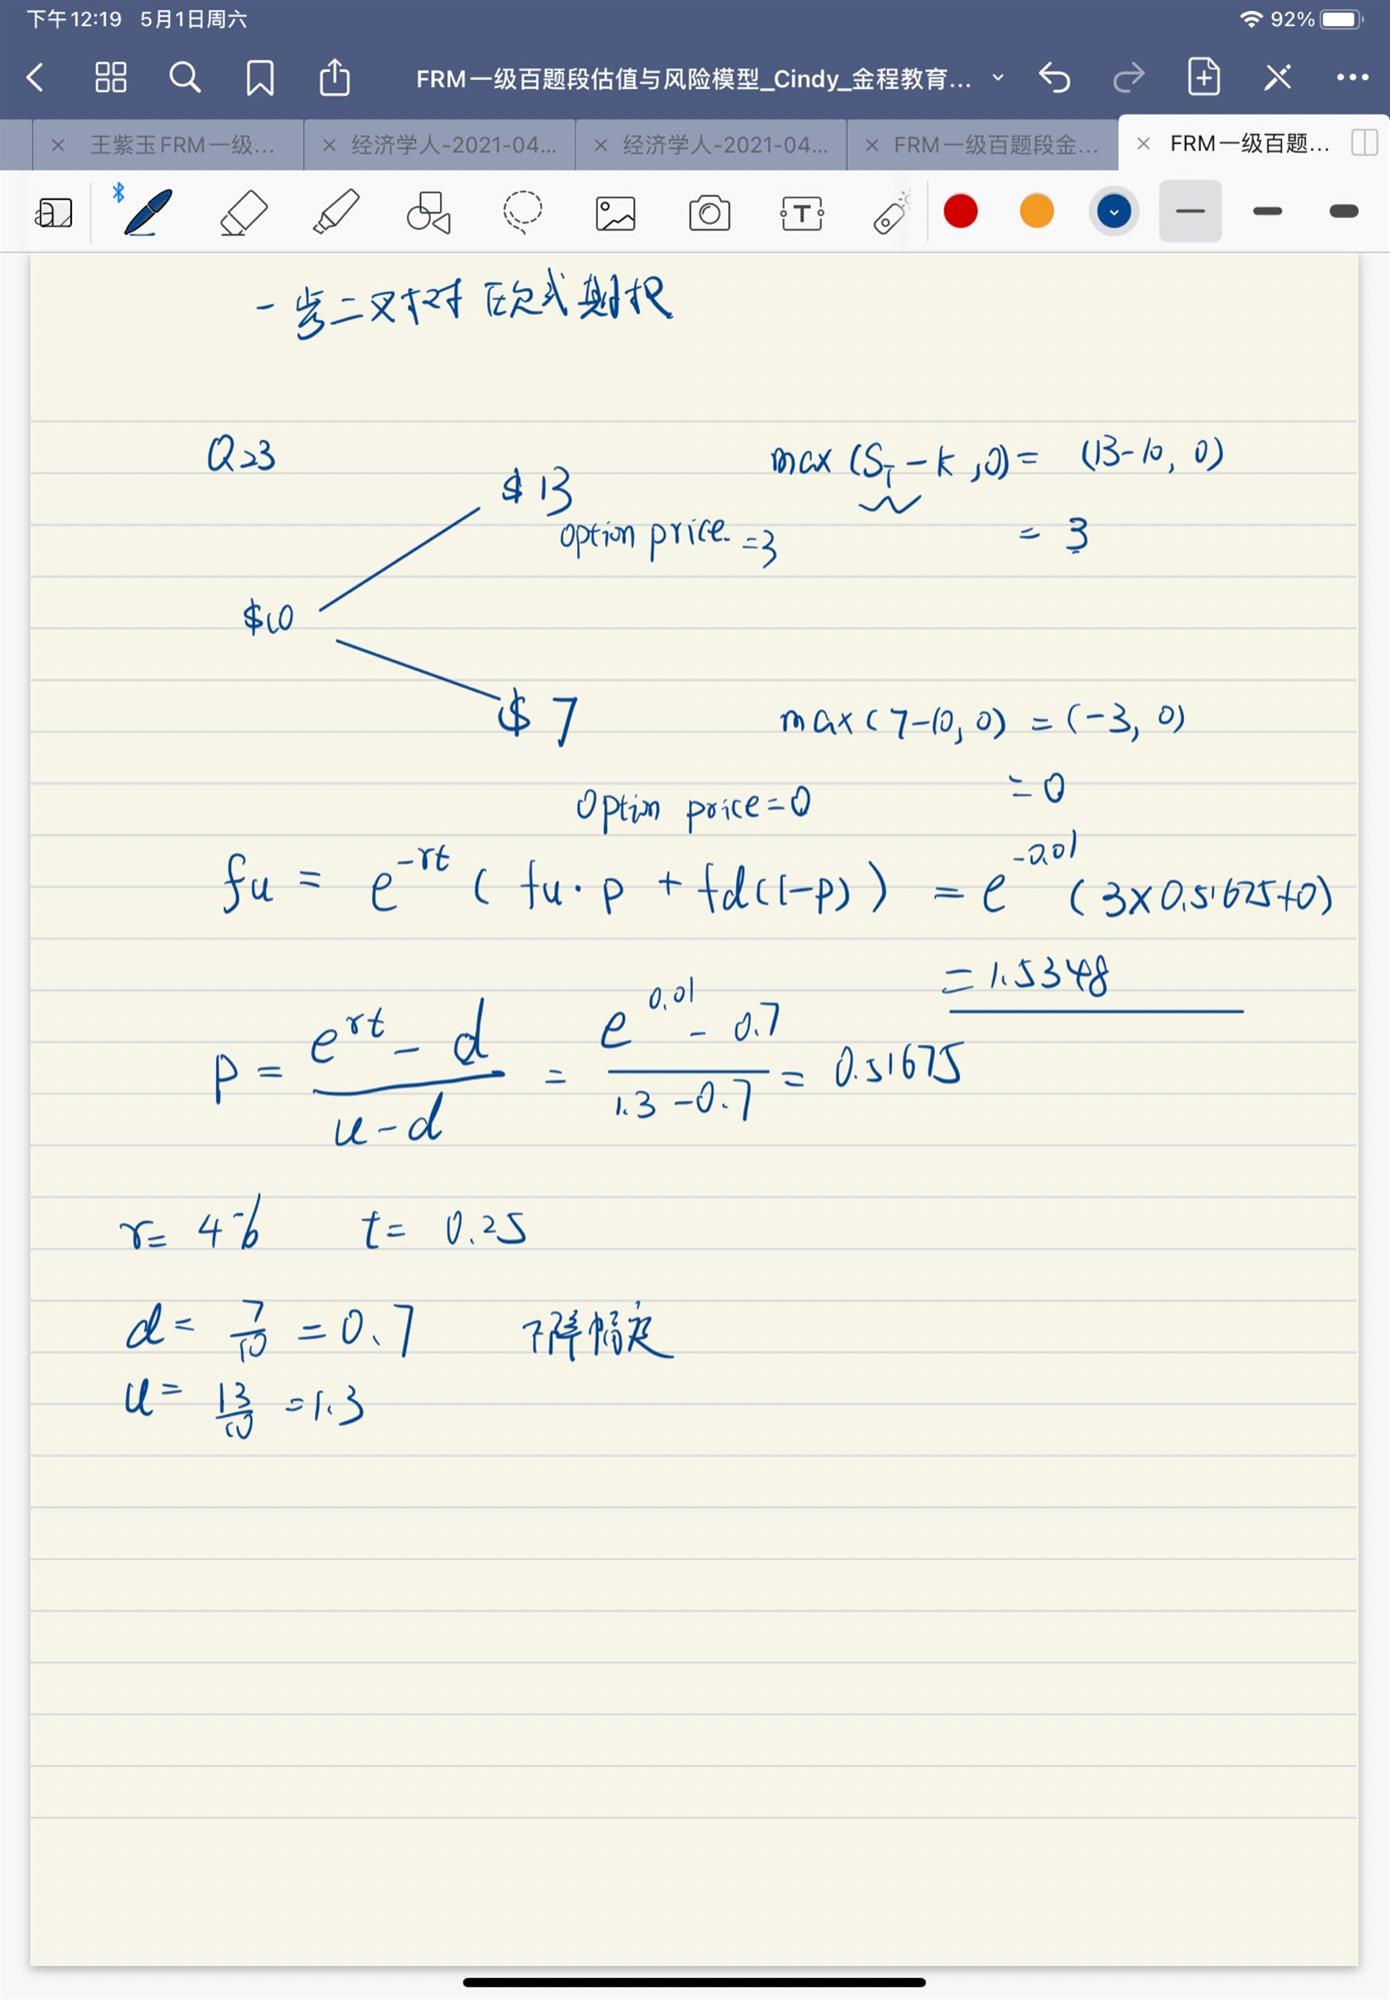 下午12:19 5月1日周六 92%
FRM一级百题段估值与风险模型_Cindy_金程教育...
王紫玉FRM一级... 经济学人-2021-04... 经济学人-2021-04... FRM一级百题段金... FRM一级百题...
一步二叉树对 欧式期权
Q23
$13 max (S_T - K, 0) = (13-10, 0)
option price = 3 = 3
$10
$7 max(7-10, 0) = (-3, 0)
= 0
Option price = 0
fu = e^{-rt} ( fu · p + fd(1-p)) = e^{-0.01} (3×0.51675+0)
= 1.5348
p = \frac{e^{rt} - d}{u - d} = \frac{e^{0.01} - 0.7}{1.3 - 0.7} = 0.51675
r = 4% t = 0.25
d = \frac{7}{10} = 0.7 下降幅度
u = \frac{13}{10} = 1.3